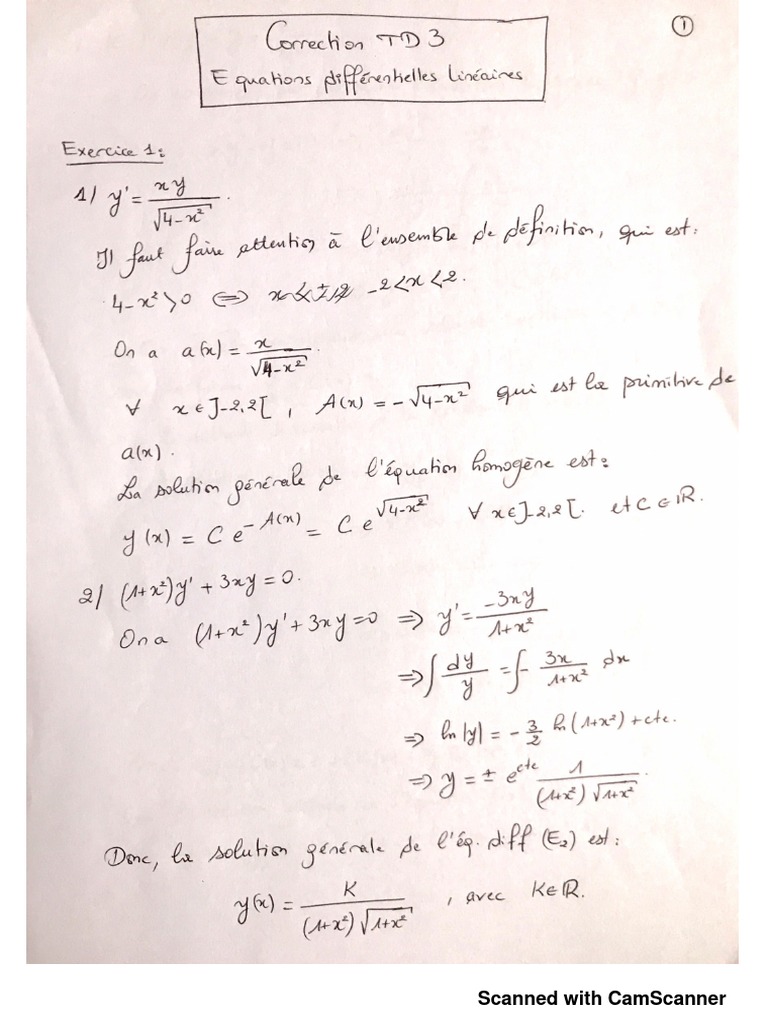 ①
Correction TD3
Equations différentielles linéaires
Exercice 1:
1/ y' = xy / √(4-x²) .
Il faut faire attention à l'ensemble de définition, qui est:
4-x² > 0 ⟺ -2<x<2.
On a a(x) = x / √(4-x²) .
∀ x ∈ ]-2,2[ , A(x) = -√(4-x²) qui est la primitive de
a(x).
La solution générale de l'équation homogène est:
y(x) = C e^(-A(x)) = C e^(√(4-x²)) ∀ x∈]-2,2[. et C ∈ ℝ.
2/ (1+x²)y' + 3xy = 0.
On a (1+x²)y' + 3xy = 0 ⟹ y' = -3xy / (1+x²)
⟹ ∫ dy/y = ∫ - 3x/(1+x²) dx
⟹ ln|y| = - 3/2 ln(1+x²) + cte.
⟹ y = ± e^(cte) 1 / ((1+x²)√(1+x²)) .
Donc, la solution générale de l'éq. diff (E₂) est:
y(x) = K / ((1+x²)√(1+x²)) , avec K∈ℝ.
Scanned with CamScanner